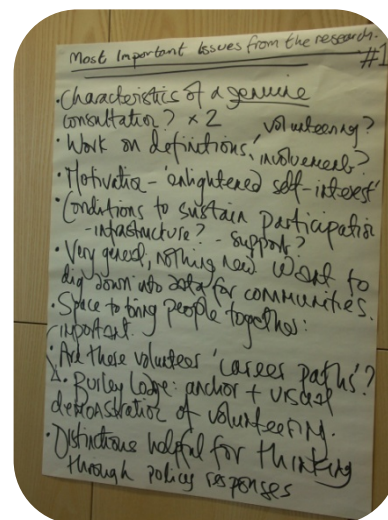 Most Important Issues from the research.
#1
• Characteristics of a genuine
consultation? x 2
volunteering?
• Work on definitions, 'involvement?
• Motivation - 'enlightened self-interest'
• Conditions to sustain participation
- infrastructure? - support?
• Very general, nothing new. Want to
dig down into data for communities.
• Space to bring people together:
important.
• Are these volunteer 'career paths'?
• Burley Lodge: anchor + visual
demonstration of volunteering.
• Distinctions helpful for thinking
through policy responses